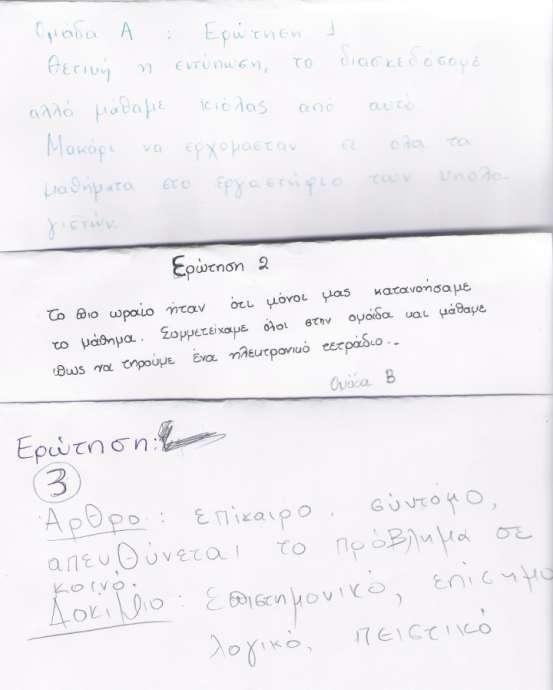 Ομάδα Α : Ερώτηση 1
Θετινή η εντύπωση, το διασκεδάσαμε
αλλά μάθαμε κιόλας από αυτό
Μακάρι να ερχόμασταν σε όλα τα
μαθήματα στο εργαστήριο των υπολο-
γιστών.
Ερώτηση 2
Το πιο ωραίο ήταν ότι μόνοι μας κατανοήσαμε
το μάθημα. Συμμετείχαμε όλοι στην ομάδα και μάθαμε
πως να τηρούμε ένα ηλεκτρονικό τετράδιο.-
Ομάδα Β
Ερώτηση:
3
Άρθρο : επίκαιρο, σύντομο,
απευθύνεται το πρόβλημα σε
κοινό.
Δοκίμιο : Επιστημονικό, επίσημο
λογικό, πειστικό